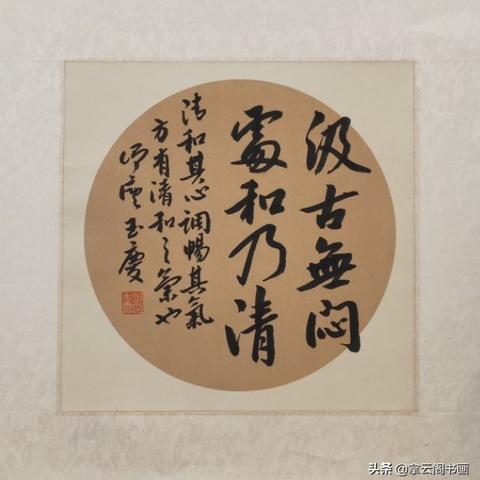 汲古無悶
處和乃清
清和其心調暢其氣
方有清和之氣也
玉慶
头条 @拿云阁书画